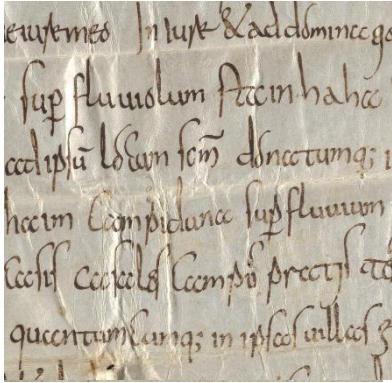 iure meo In iure & ad
sup̄ fluuiolum Stainhaha
ad ipsū locum scm̄ donatumq;
haim Campiduna sup̄ fluuium
casis casalis campis pratis
quantumcumq; in ipsas uillas